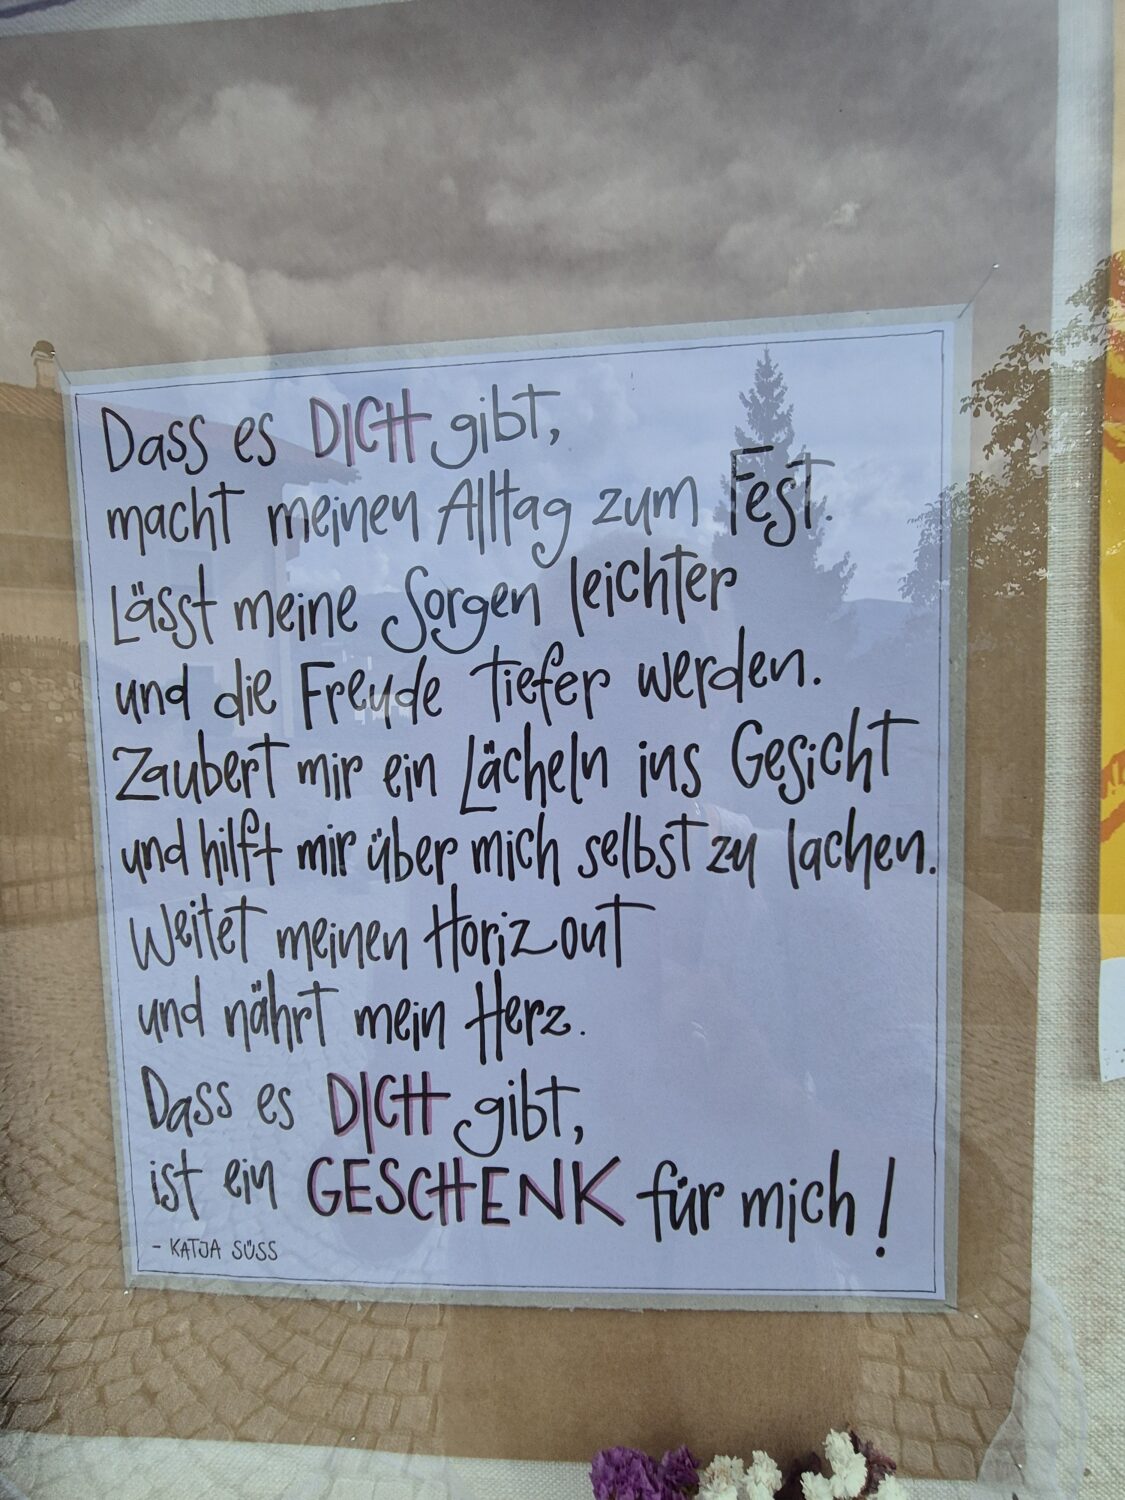 Dass es DICH gibt,
macht meinen Alltag zum Fest.
Lässt meine Sorgen leichter
und die Freude tiefer werden.
Zaubert mir ein Lächeln ins Gesicht
und hilft mir über mich selbst zu lachen.
Weitet meinen Horizont
und nährt mein Herz.
Dass es DICH gibt,
ist ein GESCHENK für mich!
- KATJA SÜSS